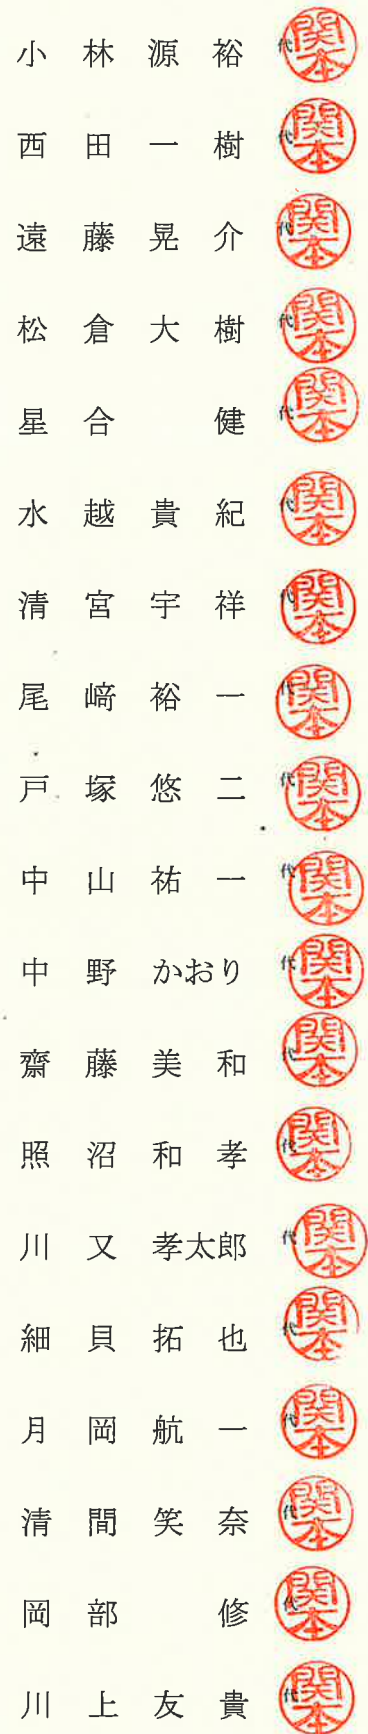 小林源裕 代 関本
西田一樹 代 関本
遠藤晃介 代 関本
松倉大樹 代 関本
星合健 代 関本
水越貴紀 代 関本
清宮宇祥 代 関本
尾﨑裕一 代 関本
戸塚悠二 代 関本
中山祐一 代 関本
中野かおり 代 関本
齋藤美和 代 関本
照沼和孝 代 関本
川又孝太郎 代 関本
細貝拓也 代 関本
月岡航一 代 関本
清間笑奈 代 関本
岡部修 代 関本
川上友貴 代 関本